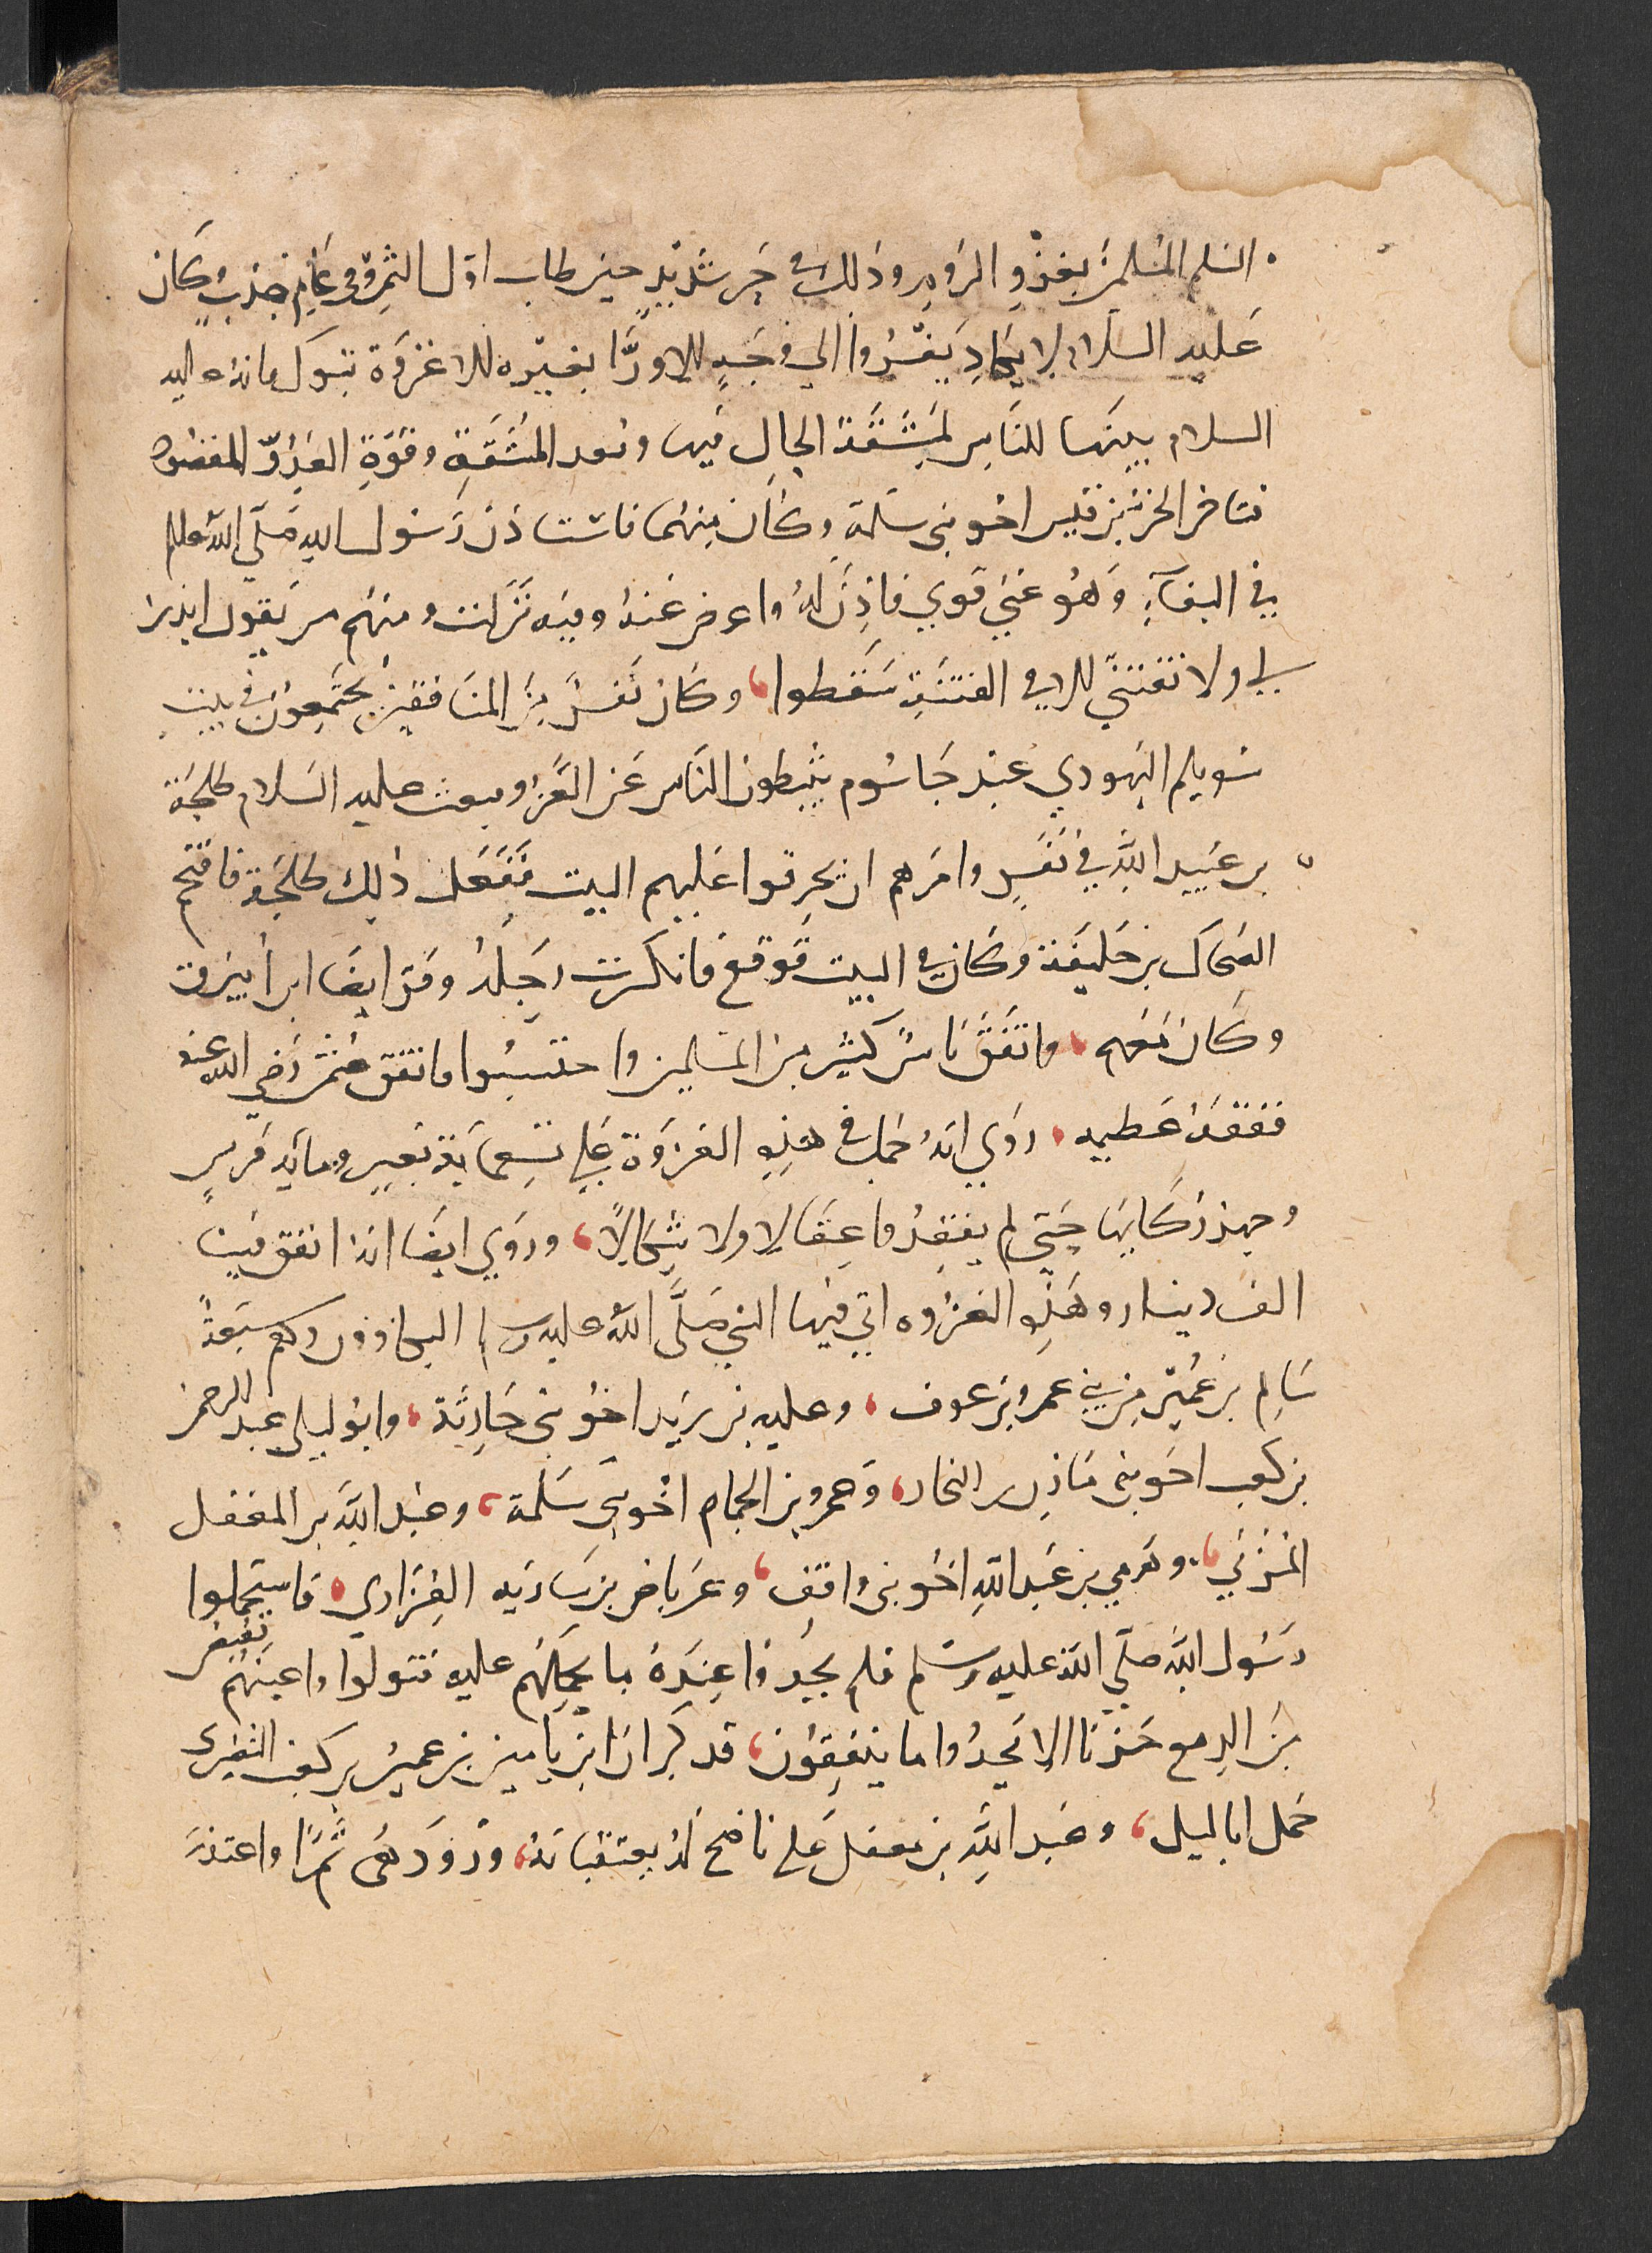 السلم المسلمين بغزو الروم وذلك في حر شديد حين طاب اول الثمر وفي عام جدب وكان
عليه السلام لا يكاد يغزوا الي وجه الا ورّا بغيره الا غزوة تبوك فانه عليه
السلام بينها للناس لمشقة الحال فيها وبعد المشقة وقوة العدوّ المقصود
فتاخر الحر بن قيس اخو بني سلمة وكان منهما فاستاذن رسول الله صلي الله عليه
في البقآء وهو غني قوي فاذن له واعرض عنه وفيه نزلت ومنهم من يقول ايذن
لي ولا تفتنّي الا في الفتنة سقطوا، وكان نفر من المنافقين يجتمعون في بيت
سويلم اليهودي عند جاسوم يثبطون الناس عن الغزو فبعث عليه السلام طلحة
بن عبيد الله في نفر وامرهم ان يحرقوا عليهم البيت ففعل ذلك طلحة فاقتحم
الضحاك بن خليفة وكان في البيت فوقع فانكسرت رجله وفرّ ايضا ابن ابيرق
وكان معهم، وانفق ناس كثير من المسلمين واحتسبوا وانفق عثمن رضي الله عنه
نفقة عظيمه، روي انه حمل في هذه الغزوة علي تسعماية بعير ومايه فرس
وجهز ركابها حتي لم يفقدوا عقالا ولا شكالًا، وروي ايضا انه انفق فيها
الف دينار وهذه الغزوه اتي فيها النبي صلّى الله عليه وسلم البكاوون وهم سبعةً
سالم بن عمير من بني عمرو بن عوف، وعليه بن زيد اخو بني حارثة، وابو ليلي عبد الرحمن
بن كعب اخو بني مازن بن النجار، وعمرو بن الحمام اخو بني سلمة، وعبد الله بن المغفل
المزني، وهرمي بن عبد الله اخو بني واقف، وعرباض بن ساريه الفزاري، فاستحملوا
رسول الله صلّي الله عليه وسلم فلم يجدوا عنده ما يحملهم عليه فتولوا واعينهم تفيض
من الدمع حزنا الا يجدوا ما ينفقون، فذكر ان ابن يامين بن عمير بن كعب النضري
حمل ابا ليلي، وعبد الله بن مغفل علي ناضح له يعتقبانه، وزودهما تمرًا واعتذر